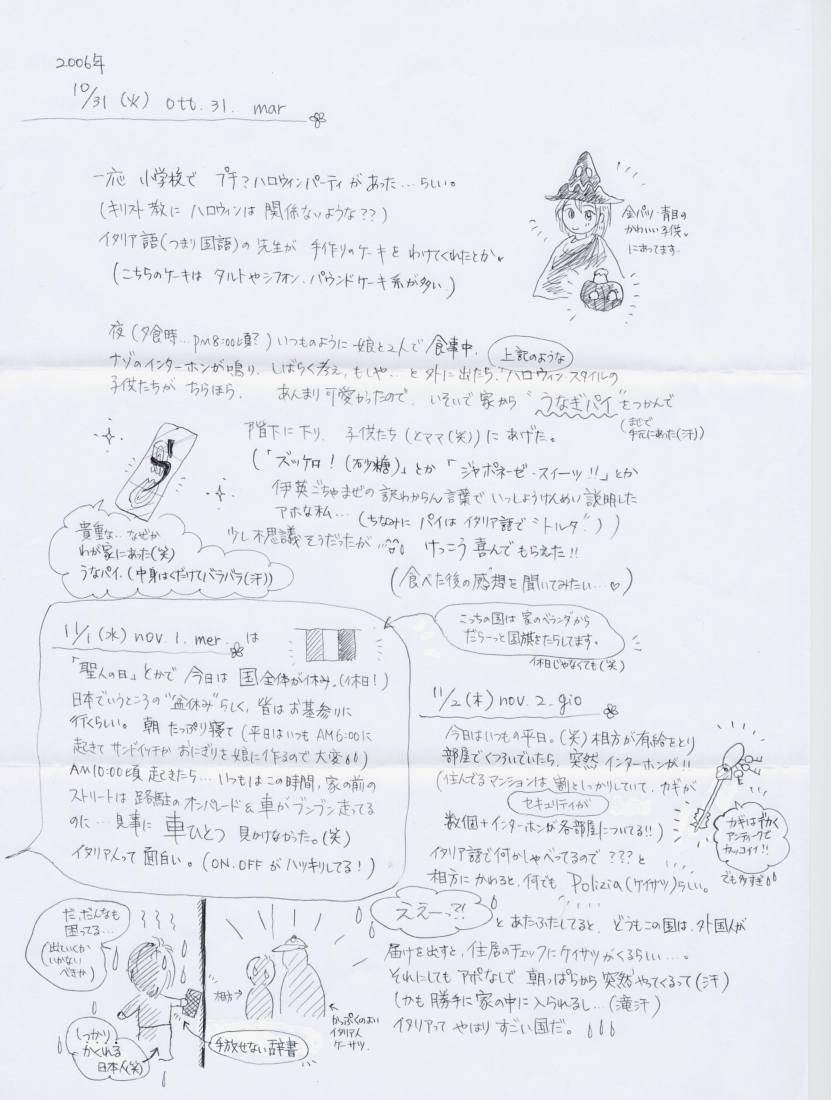 2006年
10/31(火) ott. 31. mar
一応 小学校で プチ?ハロウィンパーティがあった…らしい。
(キリスト教に ハロウィンは 関係ないような??)
イタリア語(つまり国語)の先生が 手作りのケーキを わけてくれたとか♥
(こちらのケーキは タルトやシフォン、パウンドケーキ系が多い。)
金パツ・青目の
かわいい子供♥
にあってます。
夜(夕食時…PM8:00頃?)いつものように 娘と2人で食事中、
ナゾのインターホンが鳴り、しばらく考え、もしや…と外に出たら、上記のような ハロウィン・スタイルの
子供たちが ちらほら。 あんまり可愛かったので、いそいで家から “うなぎパイ” をつかんで
(まだ
手元にあった(汗))
階下に下り、子供たち(とママ(笑))に あげた。
(「ズッケロ!(砂糖)」とか「ジャポネーゼ・スイーツ!!」とか
伊英ごちゃまぜの訳わからん言葉で いっしょうけんめい説明した
アホな私… (ちなみに パイは イタリア語で “トルタ”))
少し不思議そうだったが けっこう喜んでもらえた!!
(食べた後の感想を聞いてみたい…♡)
貴重な… なぜか
わが家にあった(笑)
うなパイ。(中身はくだけてバラバラ(汗))
11/1(水) nov. 1. mer. は
「聖人の日」とかで 今日は 国全体が休み。(休日!)
日本でいうところの “盆休み” らしく、皆は お墓参りに
行くらしい。 朝 たっぷり寝て(平日はいつも AM6:00に
起きて サンドイッチか おにぎりを娘に作るので大変)
AM10:00頃 起きたら… いつもはこの時間、家の前の
ストリートは 路駐のオンパレード&車がブンブン走ってる
のに… 見事に 車ひとつ 見かけなかった。(笑)
イタリア人って 面白い。(ON、OFF がハッキリしてる!)
こっちの国は 家のベランダから
だらーっと国旗をたらしてます。
休日じゃなくても(笑)
11/2(木) nov. 2. gio
今日はいつもの平日。(笑)相方が有給をとり
部屋でくつろいでいたら、突然 インターホンが!!
(住んでるマンションは 割としっかりしていて、カギが
セキュリティが
数個+インターホンが各部屋についてる!!)
イタリア語で何かしゃべってるので ???と
相方に かわると、何でも Polizia(ケイサツ)らしい。
ええーっ?! とあたふたしてると、どうもこの国は、外国人が
届けを出すと、住居のチェックに ケイサツがくるらしい…。
それにしても アポなしで 朝っぱらから 突然 やってくるって(汗)
(かも 勝手に 家の中に入られるし… (滝汗)
イタリアって やはり すごい国だ。
カギはずかく
アンティークで
カッコイイ!!
でも多すぎ
だ、だんなも
困ってる…
(出ていくか
いかない
べきか)
しっかり
かくれる
日本人(笑)
手放せない辞書
相方→
かっぷくのよい
イタリア人
ケーサツ。